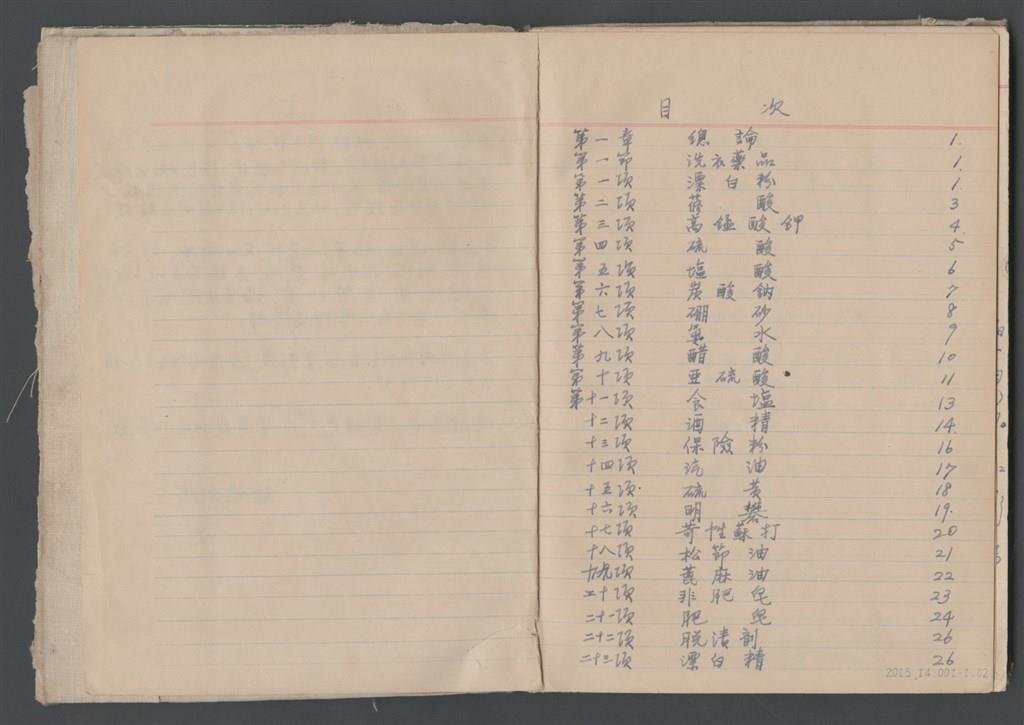 目 次
第一章 總論 1.
第一節 洗衣藥品 1.
第一項 漂白粉 1
第二項 蓚酸 3
第三項 高錳酸鉀 4.
第四項 硫酸 5
第五項 塩酸 6
第六項 炭酸鈉 7
第七項 硼砂 8
第八項 氨水 9
第九項 醋酸 10
第十項 亜硫酸 11
第十一項 食塩 13
十二項 酒精 14.
十三項 保險粉 16
十四項 汽油 17
十五項 硫黃 18
十六項 明礬 19.
十七項 苛性蘇打 20
十八項 松節油 21
十九項 蓖麻油 22
二十項 非肥皂 23
二十一項 肥皂 24
二十二項 脱漬劑 26
二十三項 漂白精 26
2015.14.001-1.02